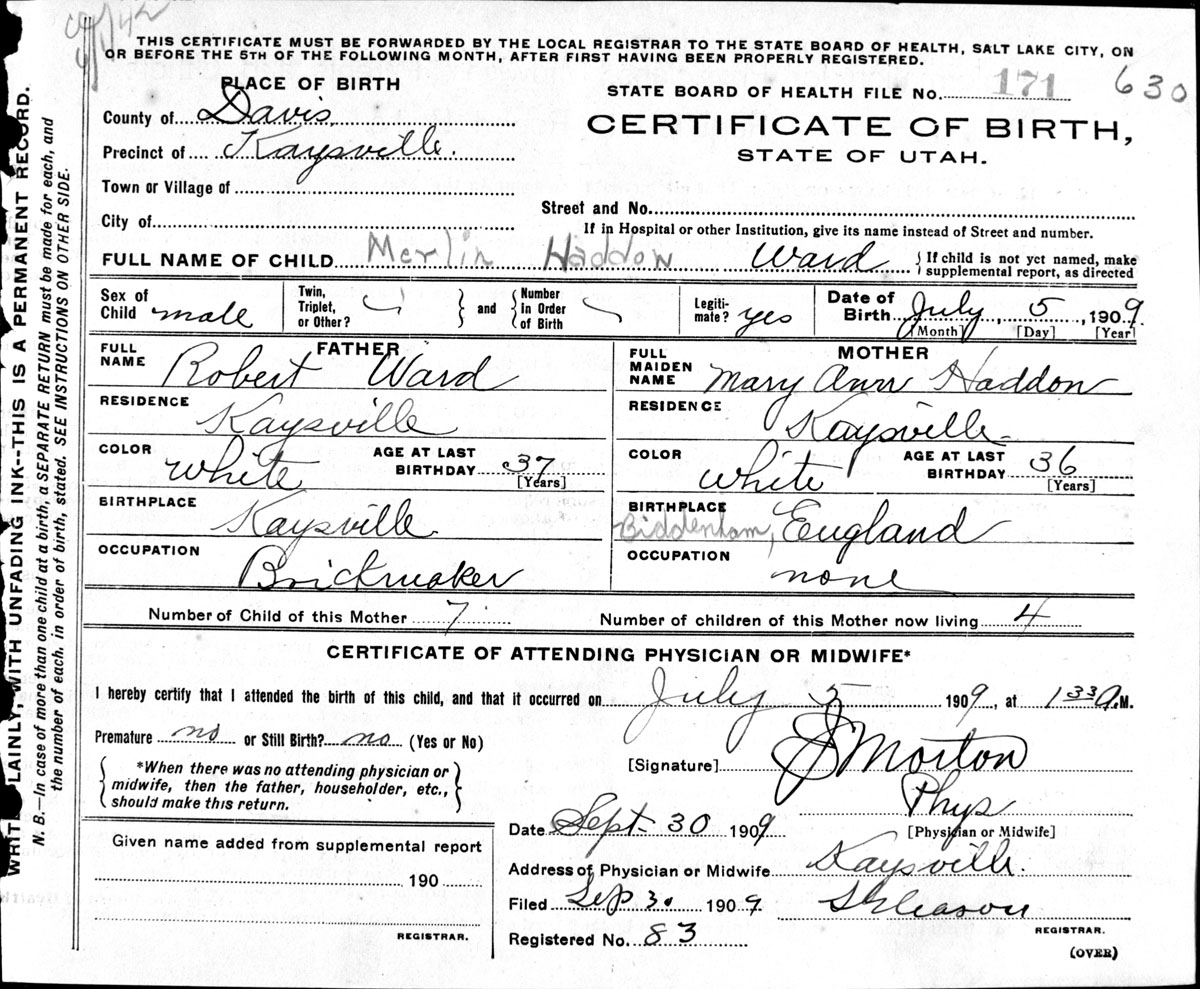 THIS CERTIFICATE MUST BE FORWARDED BY THE LOCAL REGISTRAR TO THE STATE BOARD OF HEALTH, SALT LAKE CITY, ON
OR BEFORE THE 5TH OF THE FOLLOWING MONTH, AFTER FIRST HAVING BEEN PROPERLY REGISTERED.
PLACE OF BIRTH
STATE BOARD OF HEALTH FILE No. 171 630
County of Davis
CERTIFICATE OF BIRTH,
Precinct of Kaysville.
STATE OF UTAH.
Town or Village of
Street and No.
City of
If in Hospital or other Institution, give its name instead of Street and number.
FULL NAME OF CHILD Merlin Haddon Ward { If child is not yet named, make
supplemental report, as directed
Sex of Child male
Twin, Triplet, or Other? } and { Number in Order of Birth
Legiti-mate? yes
Date of Birth July, 5, 1909.
[Month] [Day] [Year]
FATHER
FULL NAME Robert Ward
RESIDENCE Kaysville
COLOR White AGE AT LAST BIRTHDAY 37
[Years]
BIRTHPLACE Kaysville.
OCCUPATION Brickmaker
MOTHER
FULL MAIDEN NAME Mary Ann Haddon
RESIDENCE Kaysville
COLOR White AGE AT LAST BIRTHDAY 36
[Years]
BIRTHPLACE Biddenham, England
OCCUPATION none
Number of Child of this Mother 7 Number of children of this Mother now living 4
CERTIFICATE OF ATTENDING PHYSICIAN OR MIDWIFE*
I hereby certify that I attended the birth of this child, and that it occurred on July 5 1909, at 1 33 A.M.
Premature no or Still Birth? no (Yes or No)
{ *When there was no attending physician or
midwife, then the father, householder, etc.,
should make this return. }
[Signature] Morton
Phys
[Physician or Midwife]
Date Sept- 30 1909
Address of Physician or Midwife Kaysville.
Filed Sep 30 1909
Gleason
REGISTRAR.
Registered No. 83
(OVER)
Given name added from supplemental report
190
REGISTRAR.
LAINLY, WITH UNFADING INK--THIS IS A PERMANENT RECORD.
N. B.—In case of more than one child at a birth, a SEPARATE RETURN must be made for each, and
the number of each, in order of birth, stated. SEE INSTRUCTIONS ON OTHER SIDE.